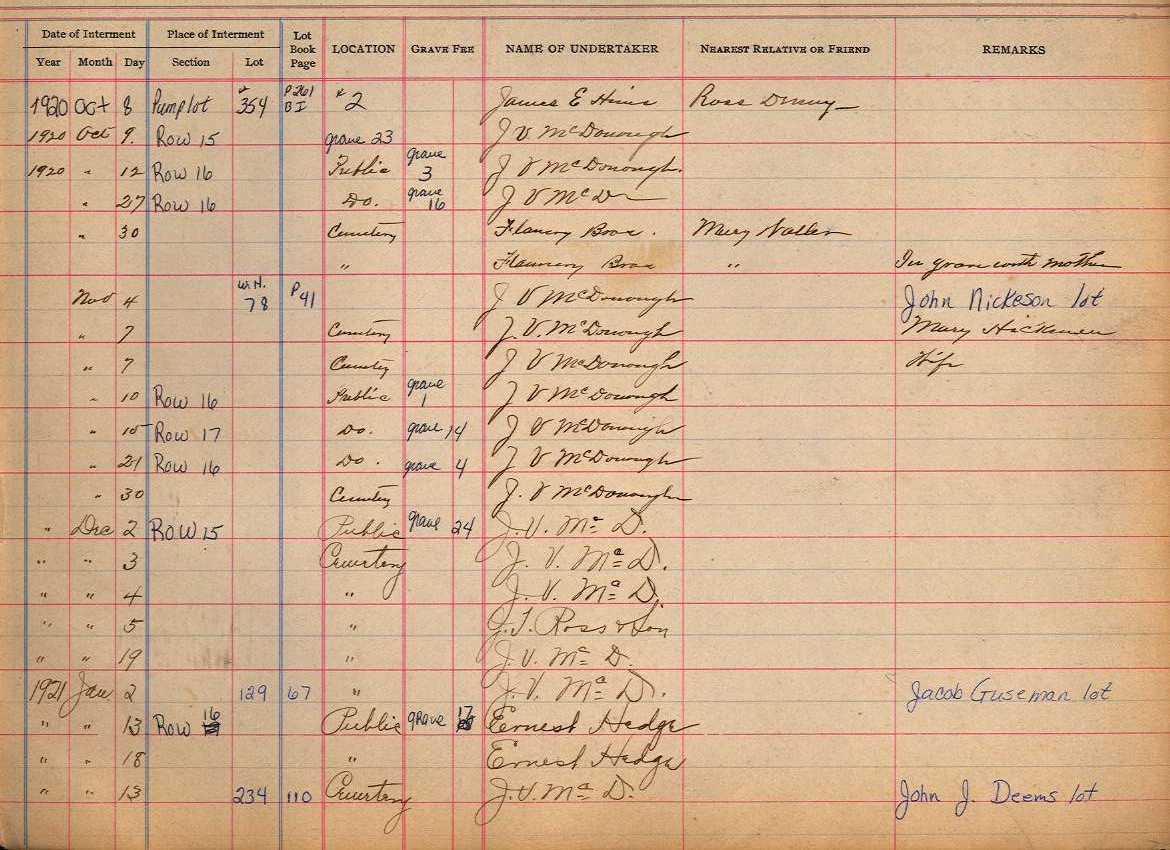 Date of Interment Place of Interment Lot Book Page LOCATION GRAVE FEE NAME OF UNDERTAKER NEAREST RELATIVE OR FRIEND REMARKS
Year Month Day Section Lot
1920 Oct 8 Pump lot # 354 P261 B I # 2 James E Hines Ross
1920 Oct 9. Row 15 grave 23 J V McDonough
1920 " 12 Row 16 Public grave 3 J V McDonough.
" 27 Row 16 Do. grave 16 J V McD
" 30 Cemetery Flannery Bros. Mary
" Flannery Bros " In grave with mother
Nov 4 W.H. 78 P 41 J V McDonough John Nickeson lot
" 7 Cemetery J. V. McDonough Mary
" 7 Cemetery J V McDonough Wife
" 10 Row 16 Public grave 1 J V McDonough
" 15 Row 17 Do. grave 14 J V McDonough
" 21 Row 16 Do. grave 4 J V McDonough
" 30 Cemetery J. V McDonough
" Dec 2 Row 15 Public grave 24 J. V. Mc D.
" " 3 Cemetery J. V. Mc D.
" " 4 " J. V. Mc D.
" " 5 " J. T. Ross & Son
" " 19 " J. V. Mc D.
1921 Jan. 2 129 67 " J. V. Mc D. Jacob Guseman lot
" " 13 Row 16 Public grave 17 Ernest Hedge
" " 18 " Ernest Hedge
" " 13 234 110 Cemetery J. V. Mc D. John J. Deems lot